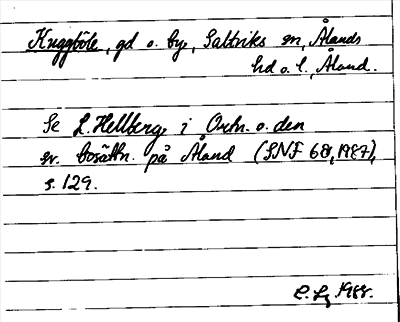 Kuggböle, gd o. by, Saltviks sn, Ålands
hd o. l., Åland.
Se L. Hellberg i Ortn. o. den
sv. bosättn. på Åland (SNF 68, 1987),
s. 129.
1988.